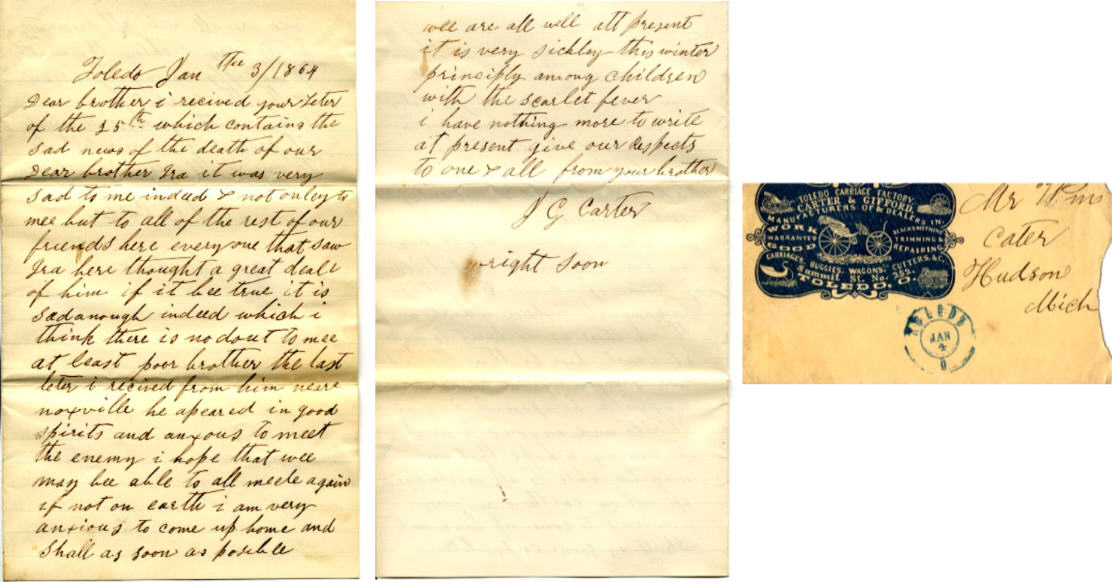 Toledo Jan the 3/1864
Dear brother i recived your Leter
of the 25th which contains the
sad news of the death of our
Dear brother Ira it was very
sad to me indeed & not onley to
mee but to all of the rest of our
friends here every one that saw
Ira here thought a great deale
of him if it bee true it is
sad anough indeed which i
think there is no dout to mee
at least poor brother the last
leter i recived from him neere
noxville he apeared in good
spirits and anxous to meet
the enemy i hope that wee
may bee able to all meete again
if not on earth i am very
anxious to come up home and
shall as soon as posible
wee are all well att present
it is very sickley this winter
principly among children
with the scarlet fever
i have nothing more to write
at present give our Respects
to one & all from your brother
J G Carter
wright soon
TOLEDO CARRIAGE FACTORY.
CARTER & GIFFORD.
MANUFACTURERS OF & DEALERS IN
WORK WARRANTED GOOD
BLACKSMITHING TRIMMING & REPAIRING
CARRIAGES BUGGIES, WAGONS, CUTTERS, &C.
Summit St. No. 292.
TOLEDO, O.
Mr
Cater
Hudson
Mich
TOLEDO
JAN
4
O